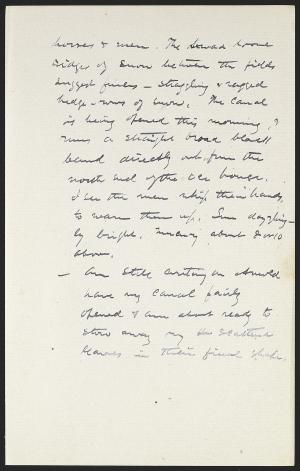 horses & men. The broad
ridges of snow between the fields
suggest fences — straggling & ragged
hedge-rows of snow. The Canal
is being opened this morning,
runs a straight broad black
band directly out from the
north end of the ice house.
I see the men whip their hands
to warm them up. Sun dazzling-
ly bright. Mercury about 8 or 10
above.
— Am still writing on Arnold
have my Canal fairly
opened & am about ready to
stow away my scattered
leaves in their final shape.